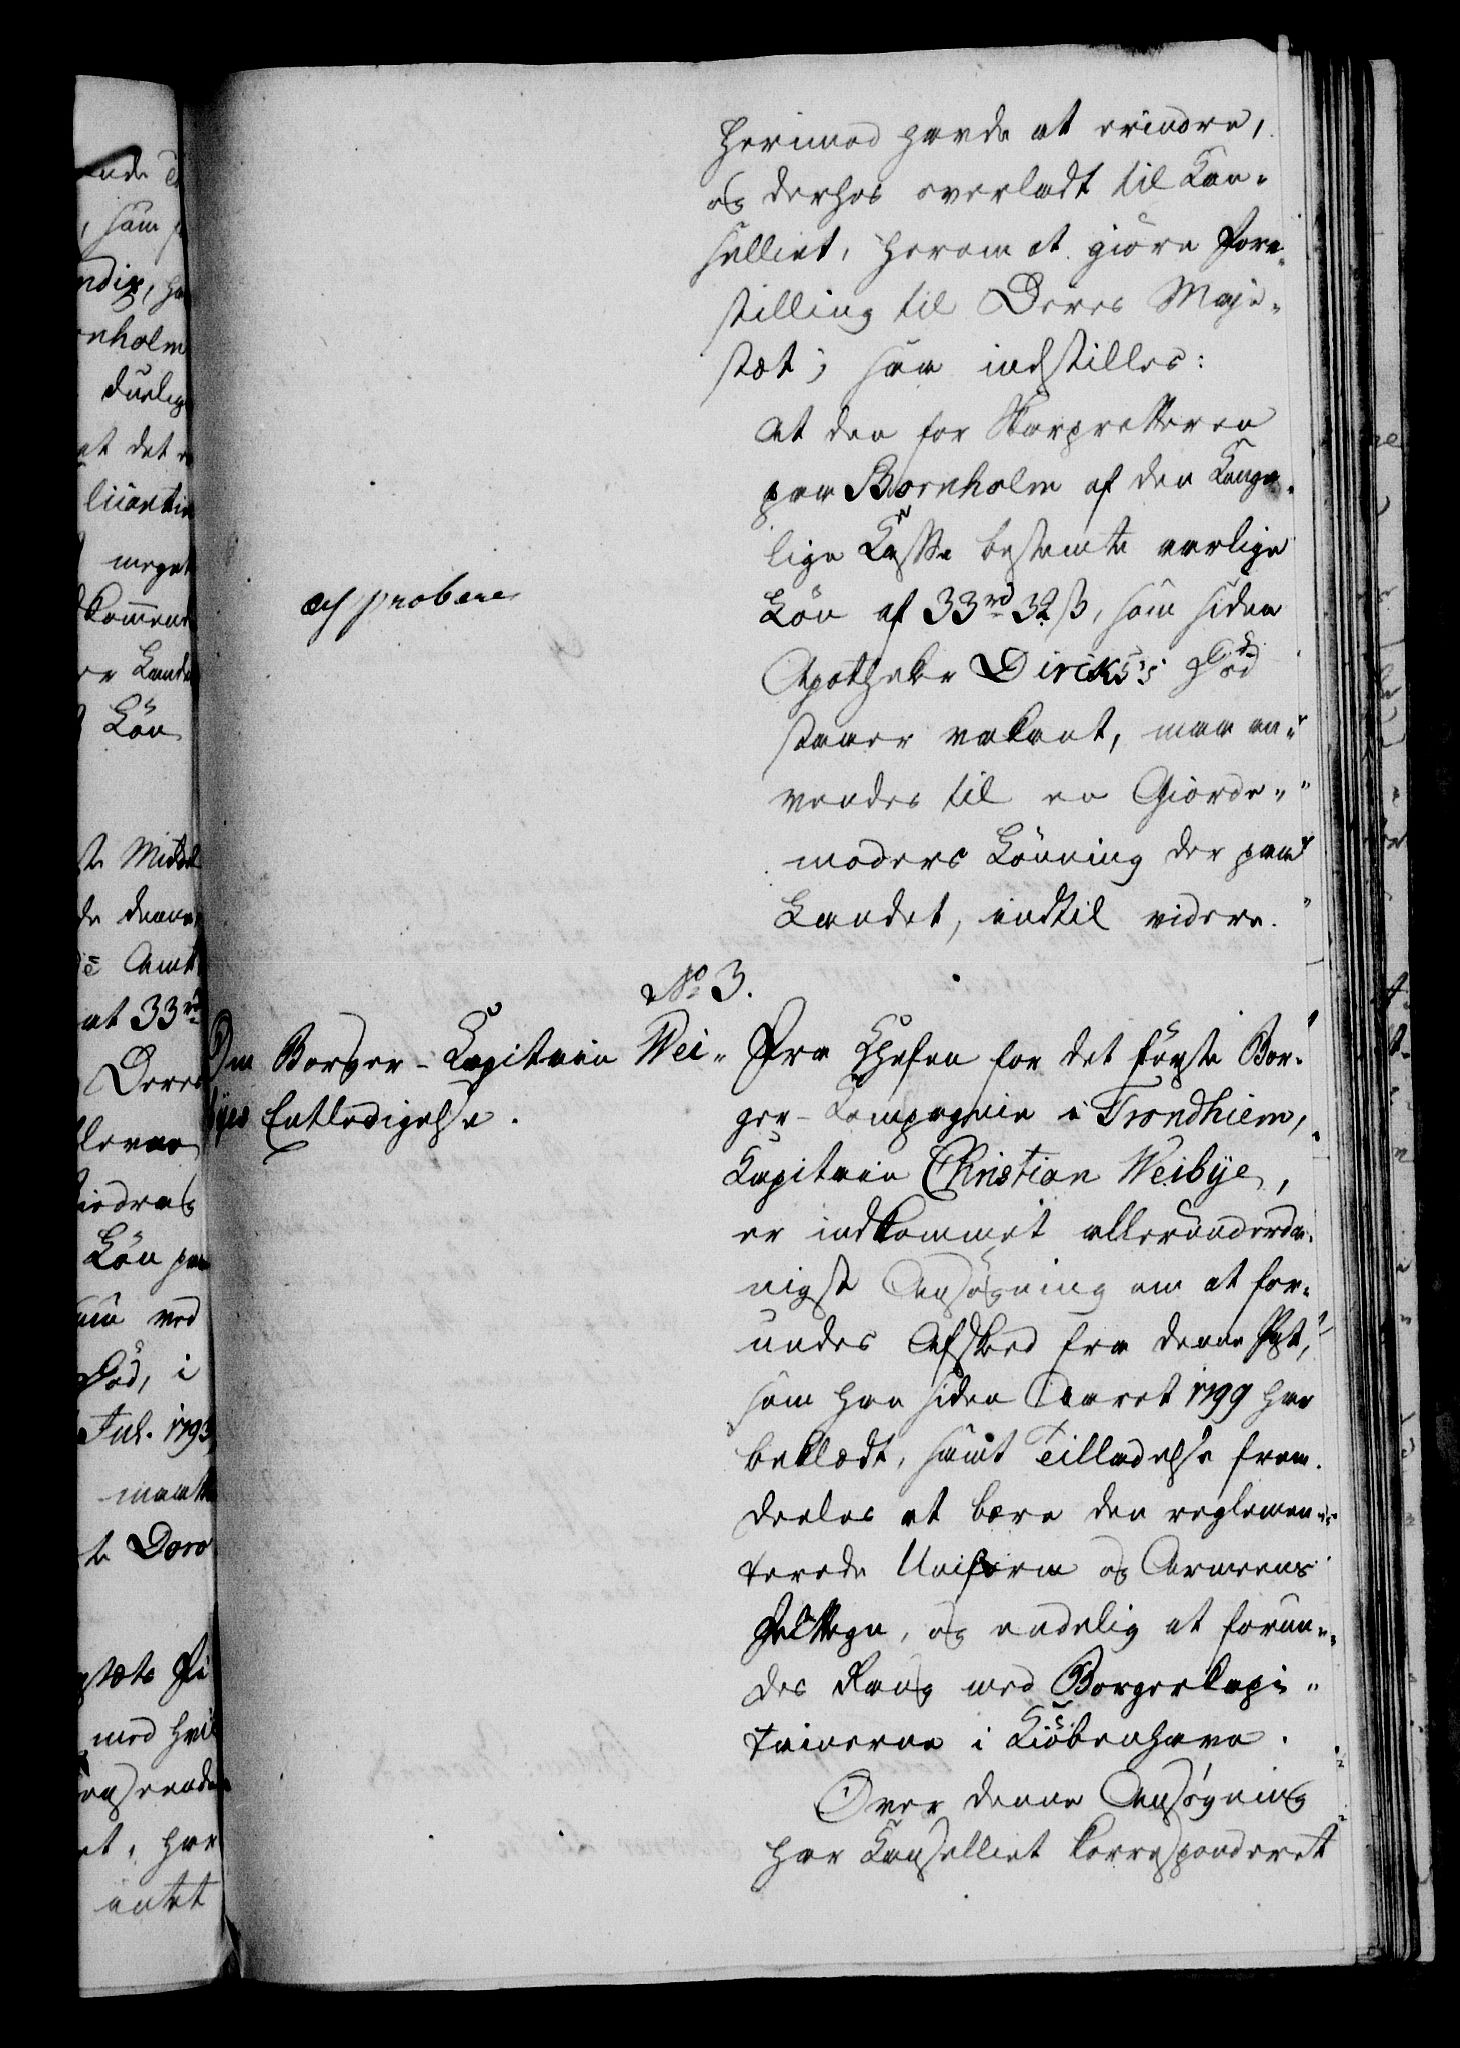 herimod havde at erindre,
og derhos overladt til Kan-
selliet, herom at giöre Fore-
stilling til Deres Maje-
stæt; saa indstilles:
At den for Skarpretteren
paa Bornholm af den Konge-
lige Kasse bestemte aarlige
Lön af 33 rd 32 ß, som siden
Apotheker Dircks's Död
staaer vakant, maa an-
vendes til en Giorde-
moders Lönning der paa
Landet, indtil videre.
approbere
No 3.
Om Borger-Capitain Wei-
byes Entledigelse.
Fra Chefen for det förste Bor-
ger-Compagnie i Trondhiem,
Capitain Christian Weibye,
er indkommet allerunderda-
nigst Ansögning om at for-
undes Afsked fra denne Post,
som han siden Aaret 1799 har
beklædt, samt Tilladelse frem-
deeles at bære den reglemen-
terede Uniform og Armeens
Felttegn, og endelig at forun-
des Rang med Borgerkapi-
tainerne i Kiöbenhavn.
Over denne Ansögning
har Kanselliet korresponderet